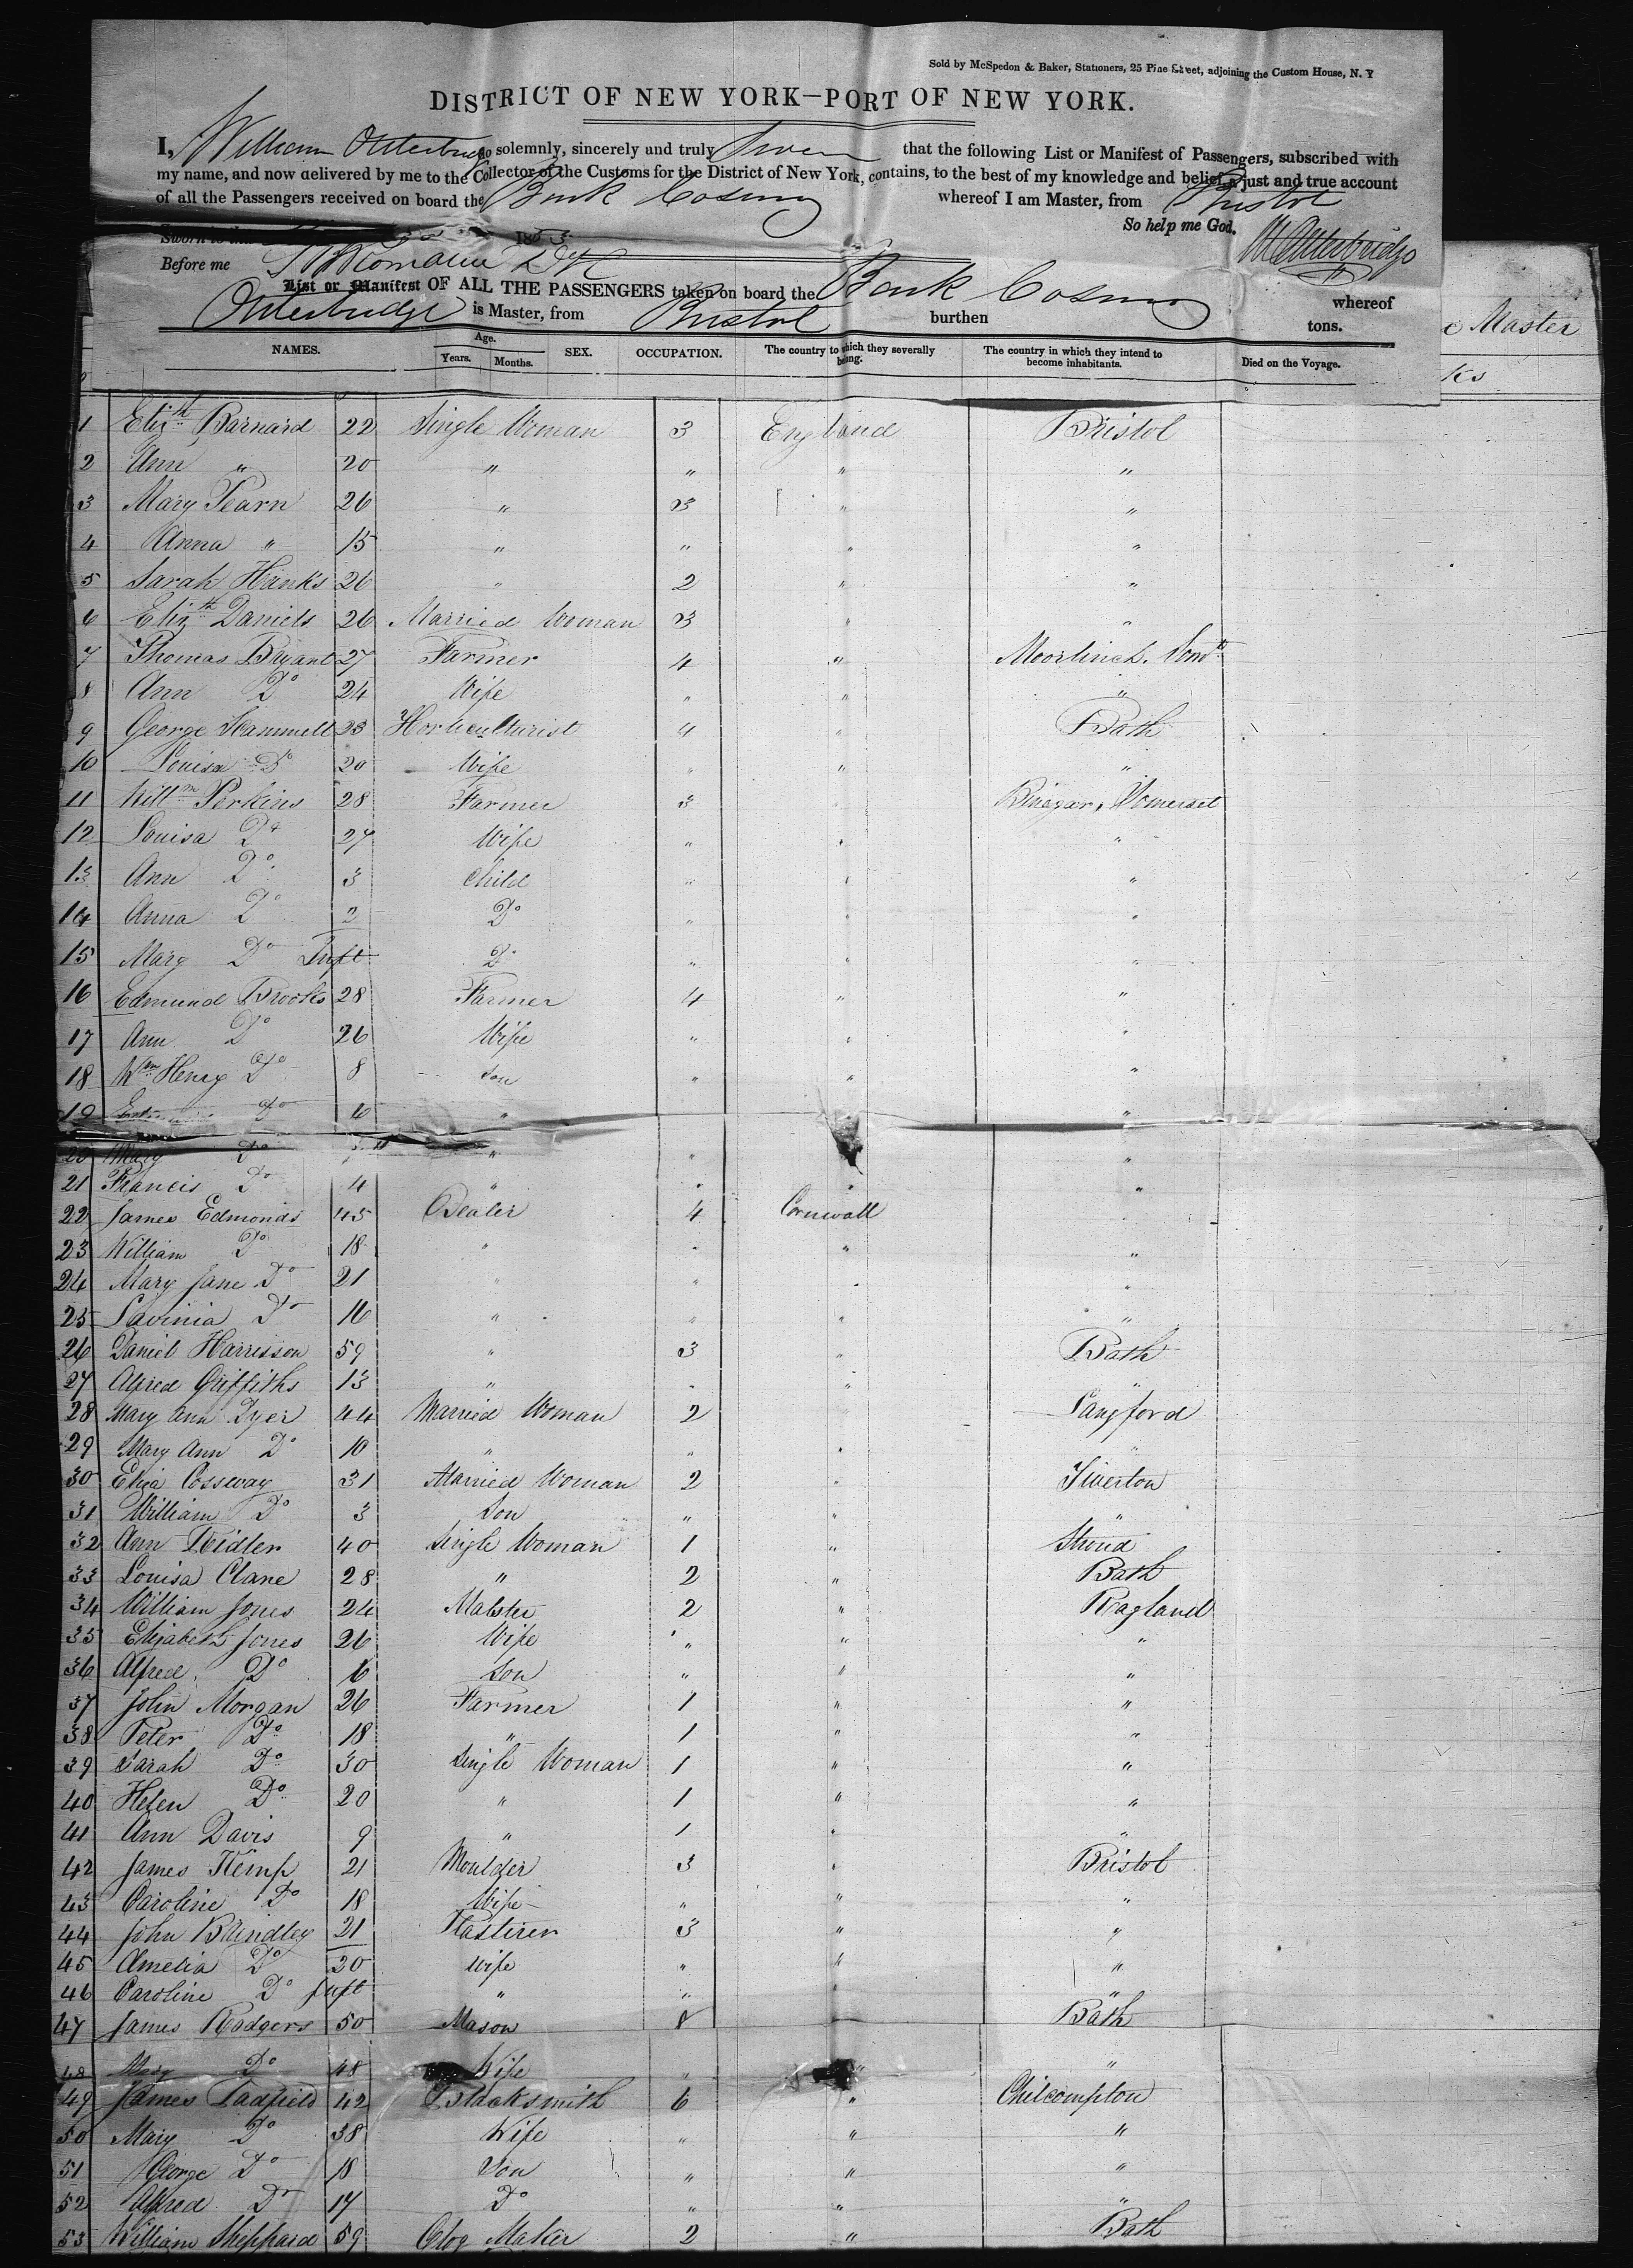 Sold by McSpedon & Baker, Stationers, 25 Pine Street, adjoining the Custom House, N. Y
DISTRICT OF NEW YORK—PORT OF NEW YORK.
I, William Outerbridge do solemnly, sincerely and truly Swear that the following List or Manifest of Passengers, subscribed with
my name, and now delivered by me to the Collector of the Customs for the District of New York, contains, to the best of my knowledge and belief, a just and true account
of all the Passengers received on board the Bark Cosmo whereof I am Master, from Bristol
So help me God.
Sworn to 1853
Before me W Outerbridge
List or Manifest OF ALL THE PASSENGERS taken on board the Bark Cosmo whereof
Outerbridge is Master, from Bristol burthen tons.
e Master
NAMES. Age. Years. Months. SEX. OCCUPATION. The country to which they severally belong. The country in which they intend to become inhabitants. Died on the Voyage.
ks
1 Elizth Barnard 22 Single Woman 3 England Bristol
2 Ann " 20 " " " "
3 Mary Pearn 26 " 3 " "
4 Anna " 15 " " " "
5 Sarah Hanks 26 " 2 " "
6 Elizth Daniels 26 Married Woman 3 " "
7 Thomas Bryant 27 Farmer 4 " Moorlinch. Somt
8 Ann Do 24 Wife " " "
9 George Hammett 23 Horticulturist 4 " Bath
10 Louisa Do 20 Wife " " "
11 Willm Perkins 28 Farmer 3 " Binegar, Somerset
12 Louisa Do 27 Wife " " "
13 Ann Do 3 Child " " "
14 Anna Do 2 Do " " "
15 Mary Do Inft Do " " "
16 Edmund Brooks 28 Farmer 4 " "
17 Ann Do 26 Wife " " "
18 Wm Henry Do 8 Son " " "
19 Do 6 " "
20 Mary Do " " "
21 Francis Do 4 " " " "
22 James Edmonds 45 Dealer 4 Cornwall
23 William Do 18 " " " "
24 Mary Jane Do 21 " " " "
25 Lavinia Do 16 " " " "
26 Daniel Harrisson 59 " 3 " Bath
27 Alfred Griffiths 13 " " " "
28 Mary Ann Dyer 44 Married Woman 2 " Langford
29 Mary Ann Do 10 " " " "
30 Eliza Cossway 31 Married Woman 2 " Tiverton
31 William Do 3 Son " " "
32 Ann Ridler 40 Single Woman 1 " Stroud
33 Louisa Clane 28 " 2 " Bath
34 William Jones 24 Malster 2 " Ragland
35 Elizabeth Jones 26 Wife " " "
36 Alfred Do 6 Son " " "
37 John Morgan 26 Farmer 1 " "
38 Peter Do 18 " 1 " "
39 Sarah Do 30 Single Woman 1 " "
40 Helen Do 20 " 1 " "
41 Ann Davis 9 " 1 " "
42 James Kemp 21 Moulder 3 " Bristol
43 Caroline Do 18 Wife " " "
44 John Brindley 21 Plasterer 3 " "
45 Amelia Do 20 Wife " " "
46 Caroline Do Inft " " " "
47 James Rodgers 50 Mason 8 Bath
48 Mary Do 48 Wife " " "
49 James Padfield 42 Blacksmith 6 " Chilcompton
50 Mary Do 38 Wife " " "
51 George Do 18 Son " " "
52 Alfred Do 17 Do " " "
53 William Sheppard 59 Clog Maker 2 " Bath